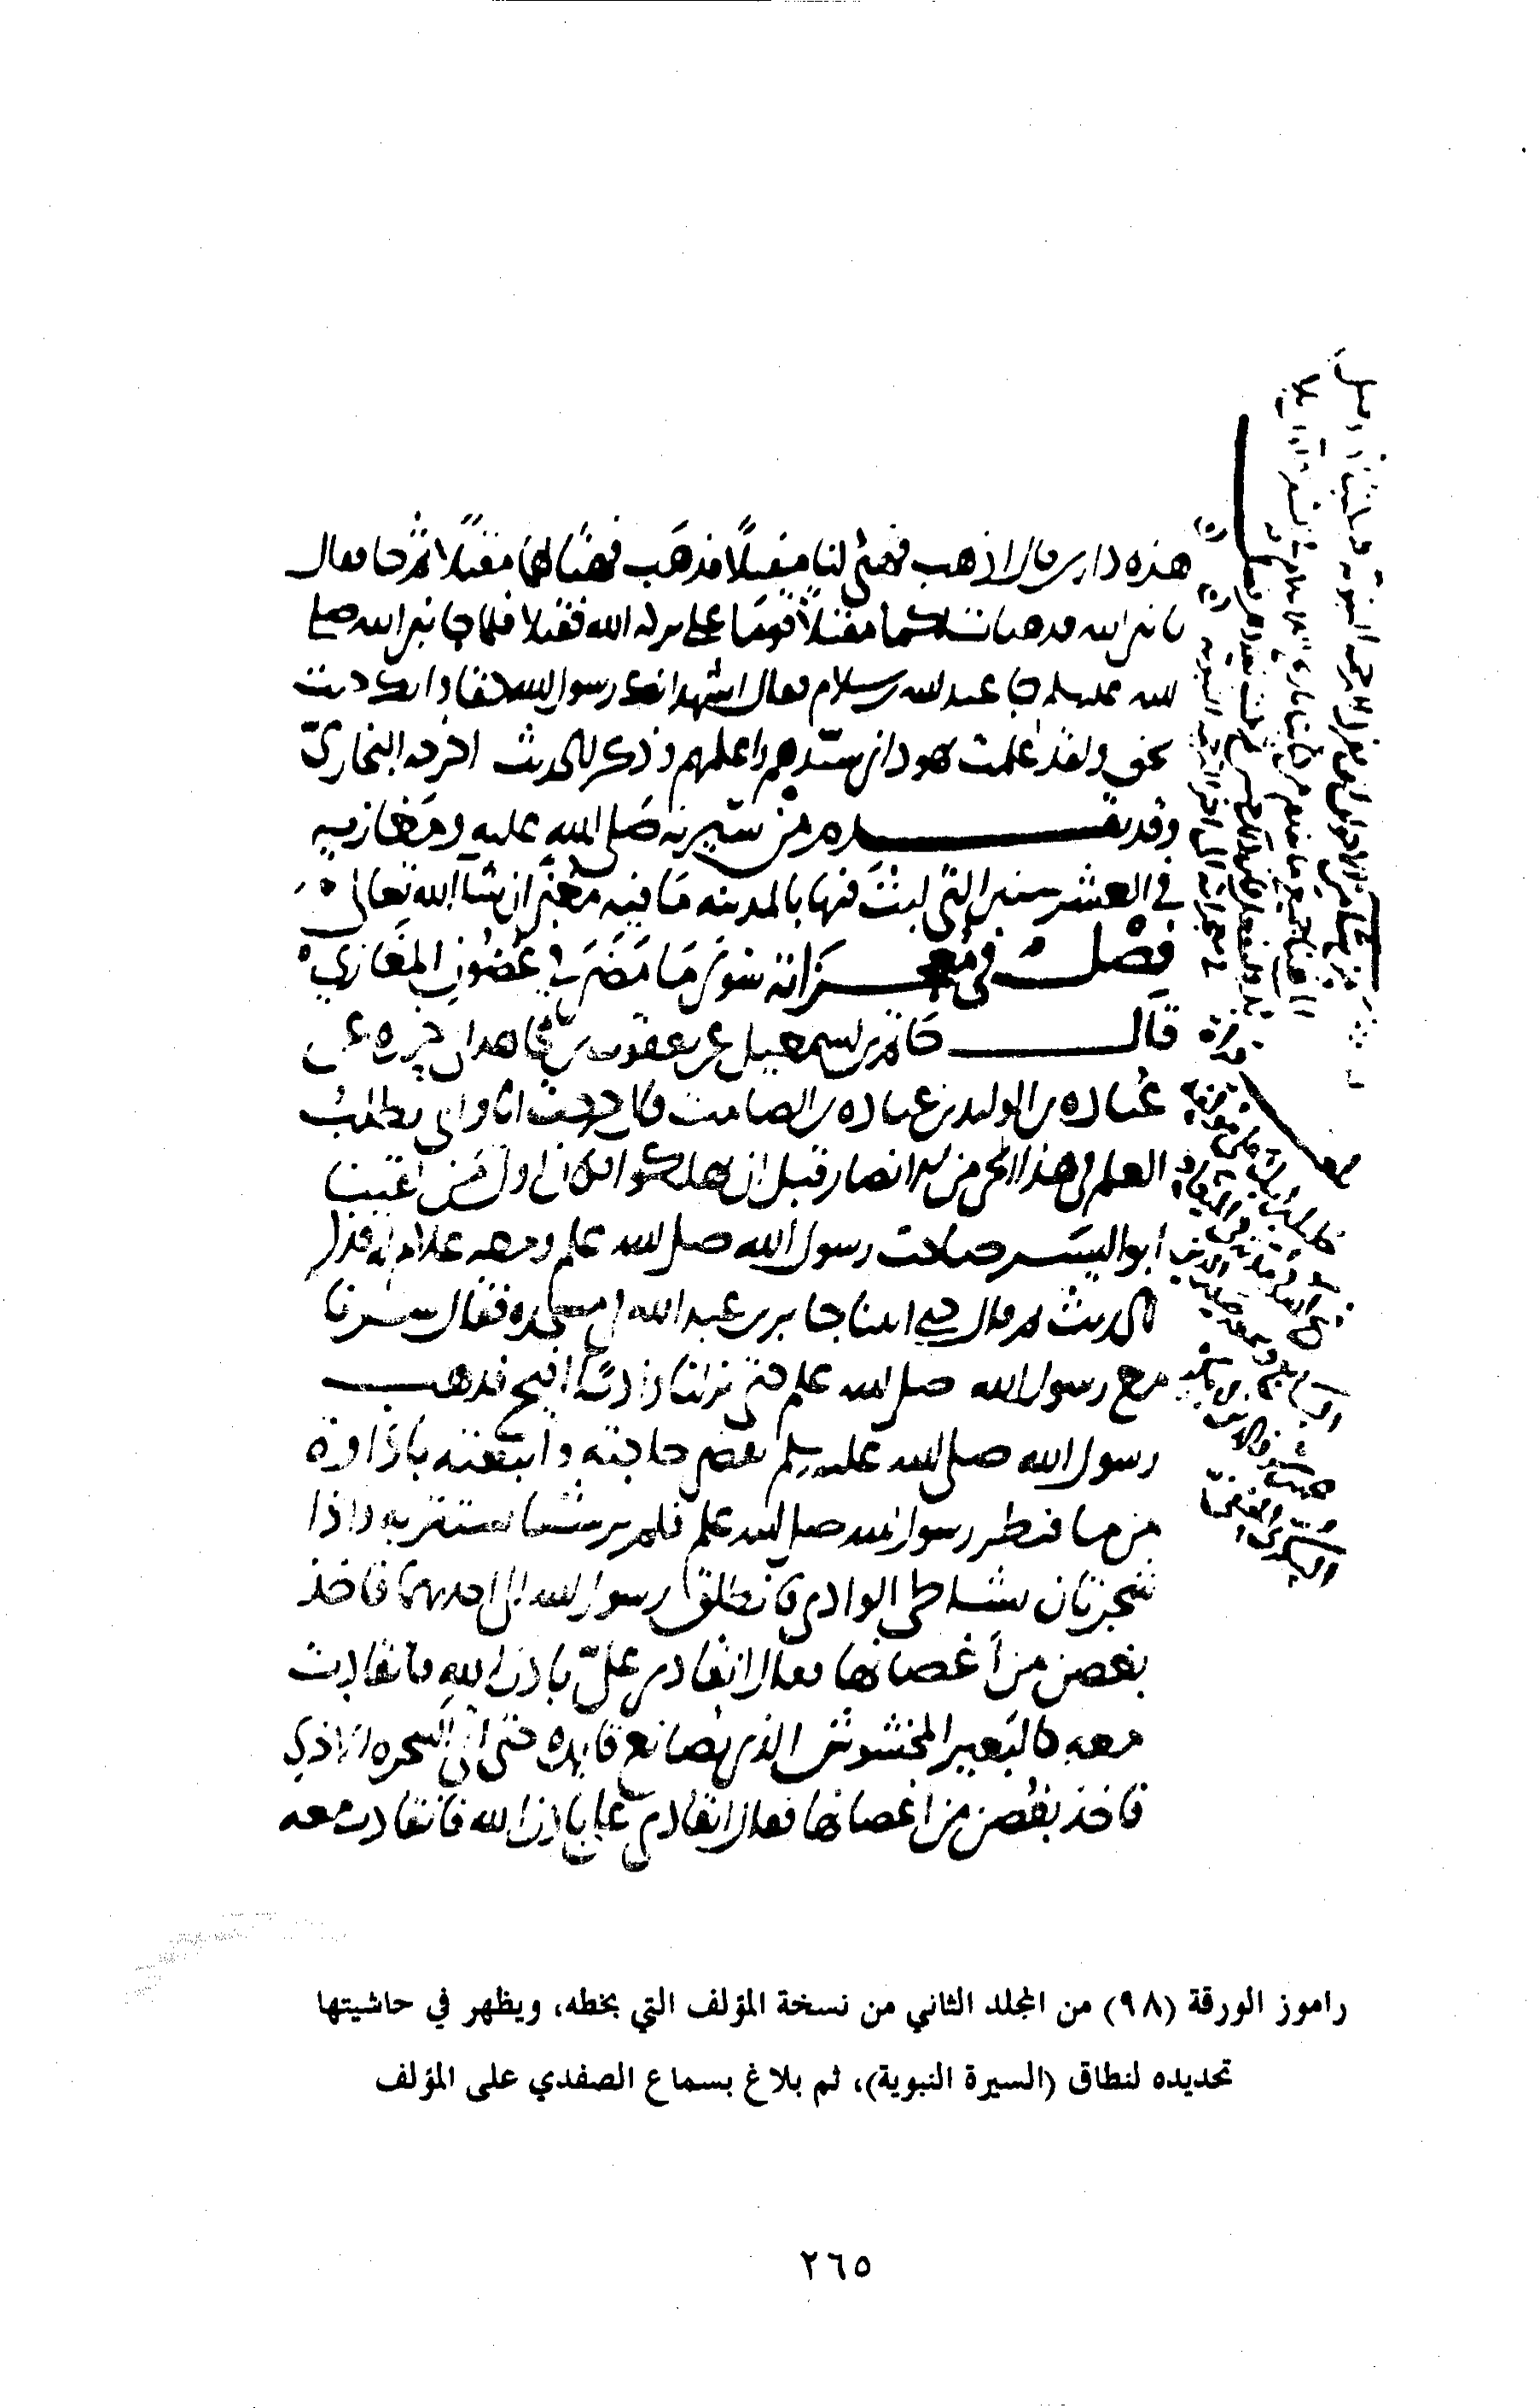 هذه داري قال اذهب فهيئ لنا مقيلا فذهب فهيأ لهما مقيلا ثم جا فقال
يا نبي الله قد هيات لكما مقيلا قوما على بركه الله فقيلا فلما جا نبي الله صلى
الله عليه وسلم جا عبد الله بن سلام فقال اشهد انك رسول الله حقا وانك جيت
بحق ولقد علمت يهود اني سيدهم واعلمهم وذكر الحديث اخرجه البخاري
وقد تقدم من سيرته صلى الله عليه ومغازيه
في العشر سنين التي لبث فيها بالمدينه ما فيه معتبر ان شا الله تعالى
فصل في معجزاته سوى ما مضى في غضون المغازي
قال حاتم بن اسمعيل عن يعقوب بن مجاهد ابي حزره عن
عباده بن الوليد بن عباده بن الصامت قال خرجت انا وابي نطلب
العلم في هذا الحي من الانصار قبل ان يهلكوا فكان اول من لقينا
ابو اليسر صاحب رسول الله صلى الله علم ومعه غلام له فذكر
الحديث ثم قال حتى اتينا جابر بن عبد الله في مسجده فقال سرنا
مع رسول الله صلى الله علم حتى نزلنا واديا افيح فذهب
رسول الله صلى الله عليه وسلم يقضي حاجته واتبعته باداوة
من ما فنظر رسول الله صلى الله علم فلم ير شيا يستتر به واذا
شجرتان بشاطى الوادي فانطلق رسول الله الى احديهما فاخذ
بغصن من أغصانها فقال انقادي عليّ باذن الله فانقادت
معه كالبعير المخشوش الذي يصانع قايده حتى اتى الشجره الاخرى
فاخذ بغصن من اغصانها فقال انقادي علي باذن الله فانقادت معه
راموز الورقة (٩٨) من المجلد الثاني من نسخة المؤلف التي بخطه، ويظهر في حاشيتها
تحديده لنطاق (السيرة النبوية)، ثم بلاغ بسماع الصفدي على المؤلف
٢٦٥